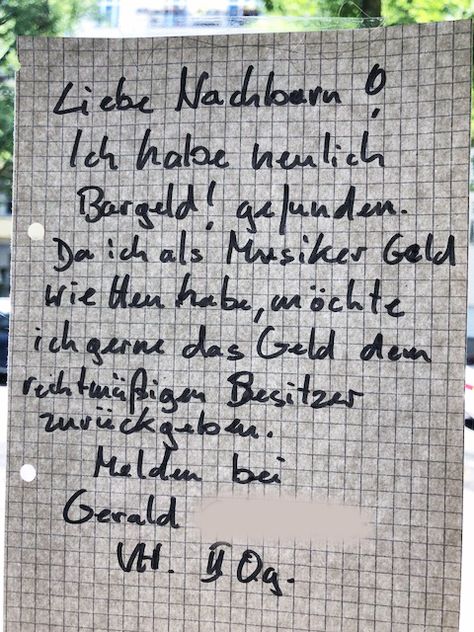 Liebe Nachbarn!
Ich habe neulich
Bargeld! gefunden.
Da ich als Musiker Geld
wie Heu habe, möchte
ich gerne das Geld dem
rechtmäßigen Besitzer
zurückgeben.
Melden bei
Gerald
VH. II Og.